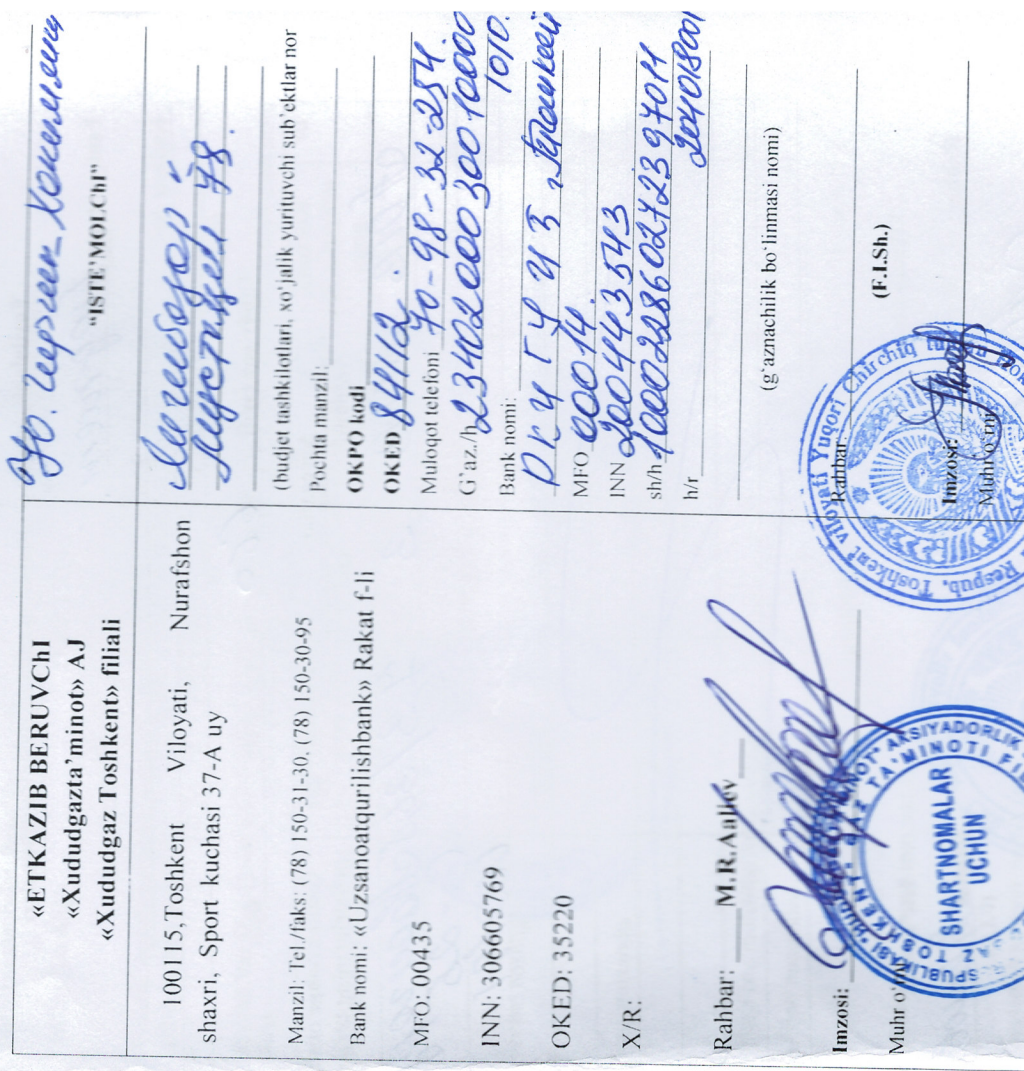 «ETKAZIB BERUVChI
«Xududgazta'minot» AJ
«Xududgaz Toshkent» filiali
100115,Toshkent Viloyati, Nurafshon
shaxri, Sport kuchasi 37-A uy
Manzil: Tel./faks: (78) 150-31-30, (78) 150-30-95
Bank nomi: «Uzsanoatqurilishbank» Rakat f-li
MFO: 00435
INN: 306605769
OKED: 35220
X/R:
Rahbar: M.R.Aaliev
Imzosi:
Muhr o'
SHARTNOMALAR
UCHUN
Уо. Чирчик Хокимлиги
"ISTE'MOLChI"
78
(budjet tashkilotlari, xo'jalik yurituvchi sub'ektlar nor
Pochta manzil:
OKPO kodi
OKED 84112.
Muloqot telefoni 70-98-32-254.
G'az./h 23402000300100001010.
Bank nomi:
MFO 00014.
INN 200443543
sh/h 100022860272397011
h/r 204018001
(g'aznachilik bo'linmasi nomi)
Rahbar:
(F.I.Sh.)
Imzosi:
Muhr o'rni
Respub. Toshkent viloyati Yuqori Chirchiq